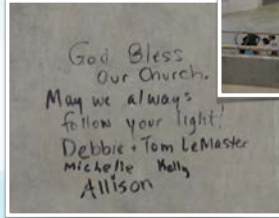 God Bless
Our Church.
May we always
follow your light!
Debbie + Tom LeMaster
Michelle Kelly
Allison